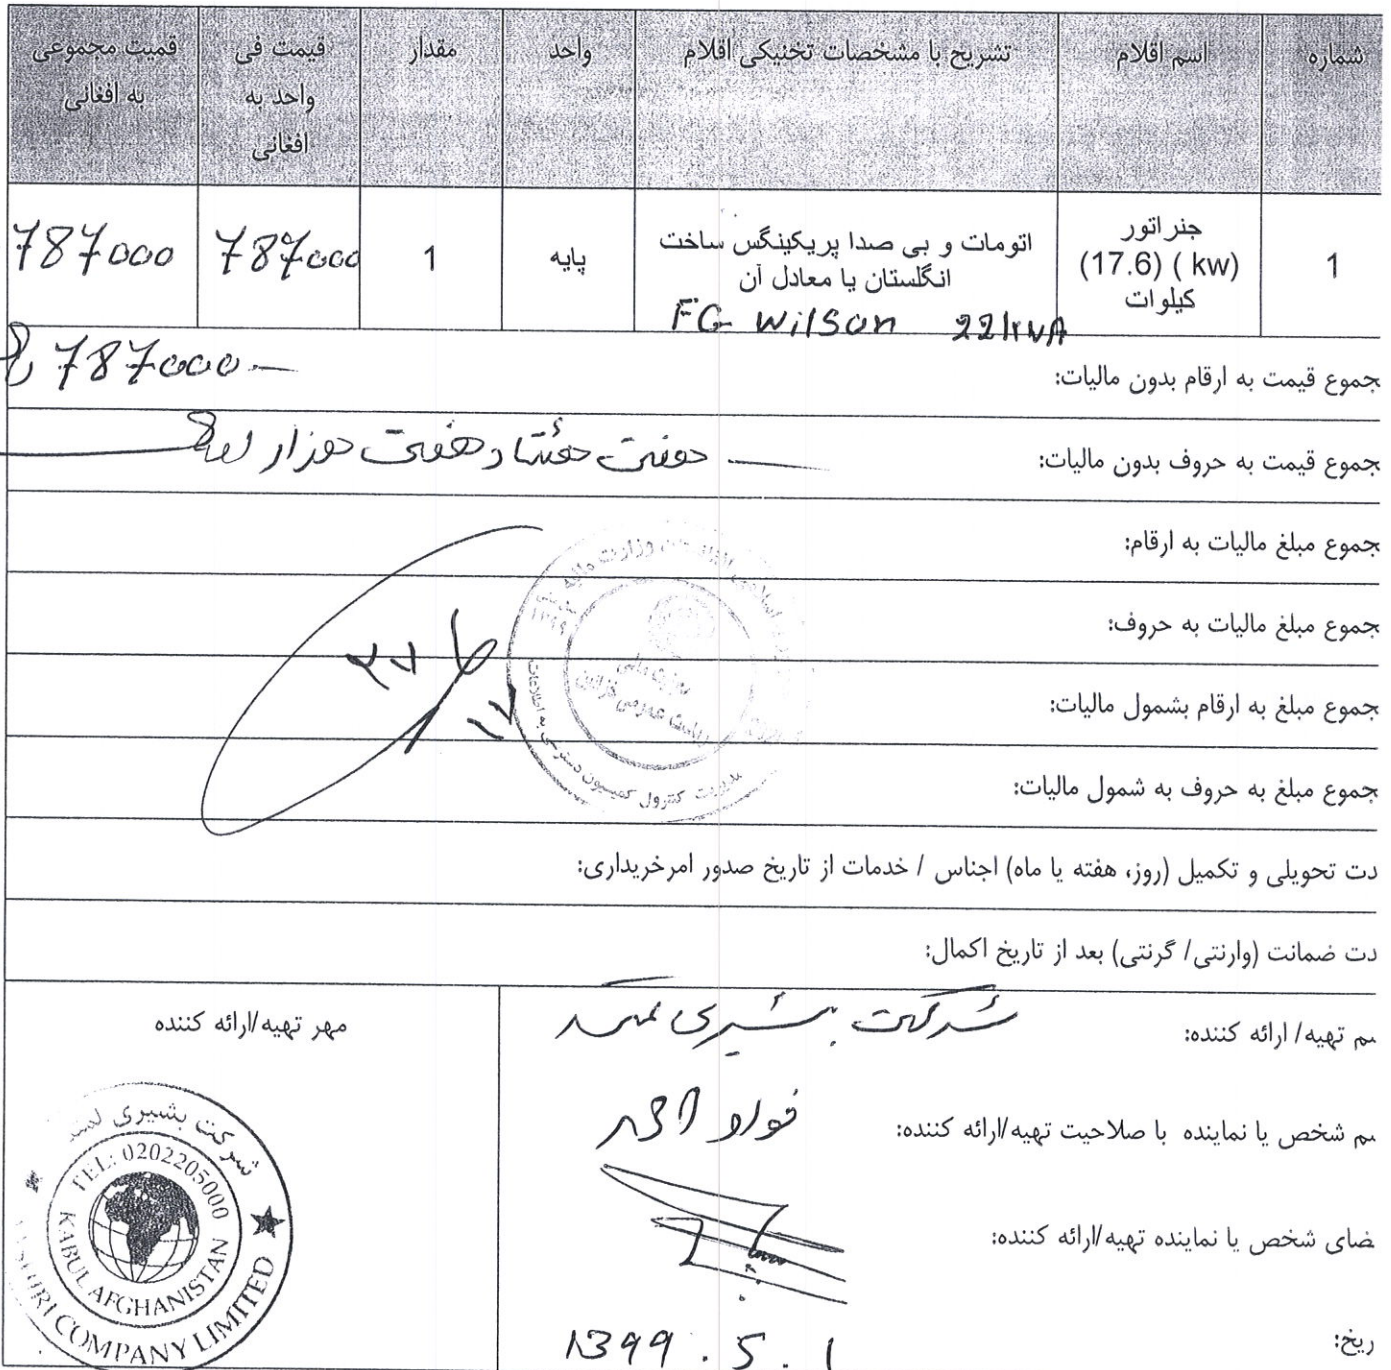 شماره
اسم اقلام
تشریح با مشخصات تخنیکی اقلام
واحد
مقدار
قیمت فی
واحد به
افغانی
قمیت مجموعی
به افغانی
1
جنراتور
(17.6) ( kw)
کیلوات
اتومات و بی صدا پریکینگس ساخت
انگلستان یا معادل آن
FG Wilson 22kVA
پایه
1
787000
787000
جموع قیمت به ارقام بدون مالیات:
787000
جموع قیمت به حروف بدون مالیات:
هفت هشتاد هفت هزار
جموع مبلغ مالیات به ارقام:
جموع مبلغ مالیات به حروف:
جموع مبلغ به ارقام بشمول مالیات:
جموع مبلغ به حروف به شمول مالیات:
دت تحویلی و تکمیل (روز، هفته یا ماه) اجناس / خدمات از تاریخ صدور امرخریداری:
دت ضمانت (وارنتی/ گرنتی) بعد از تاریخ اکمال:
سم تهیه/ ارائه کننده:
شرکت بشیری لمتد
سم شخص یا نماینده با صلاحیت تهیه/ارائه کننده:
فواد احمد
ضای شخص یا نماینده تهیه/ارائه کننده:
ریخ:
1399.5.1
مهر تهیه/ارائه کننده
شرکت بشیری
TEL: 0202205000
KABUL AFGHANISTAN
COMPANY LIMITED
وزارت مالیه
مدیریت کنترول کمیسیون دسترسی به اطلاعات